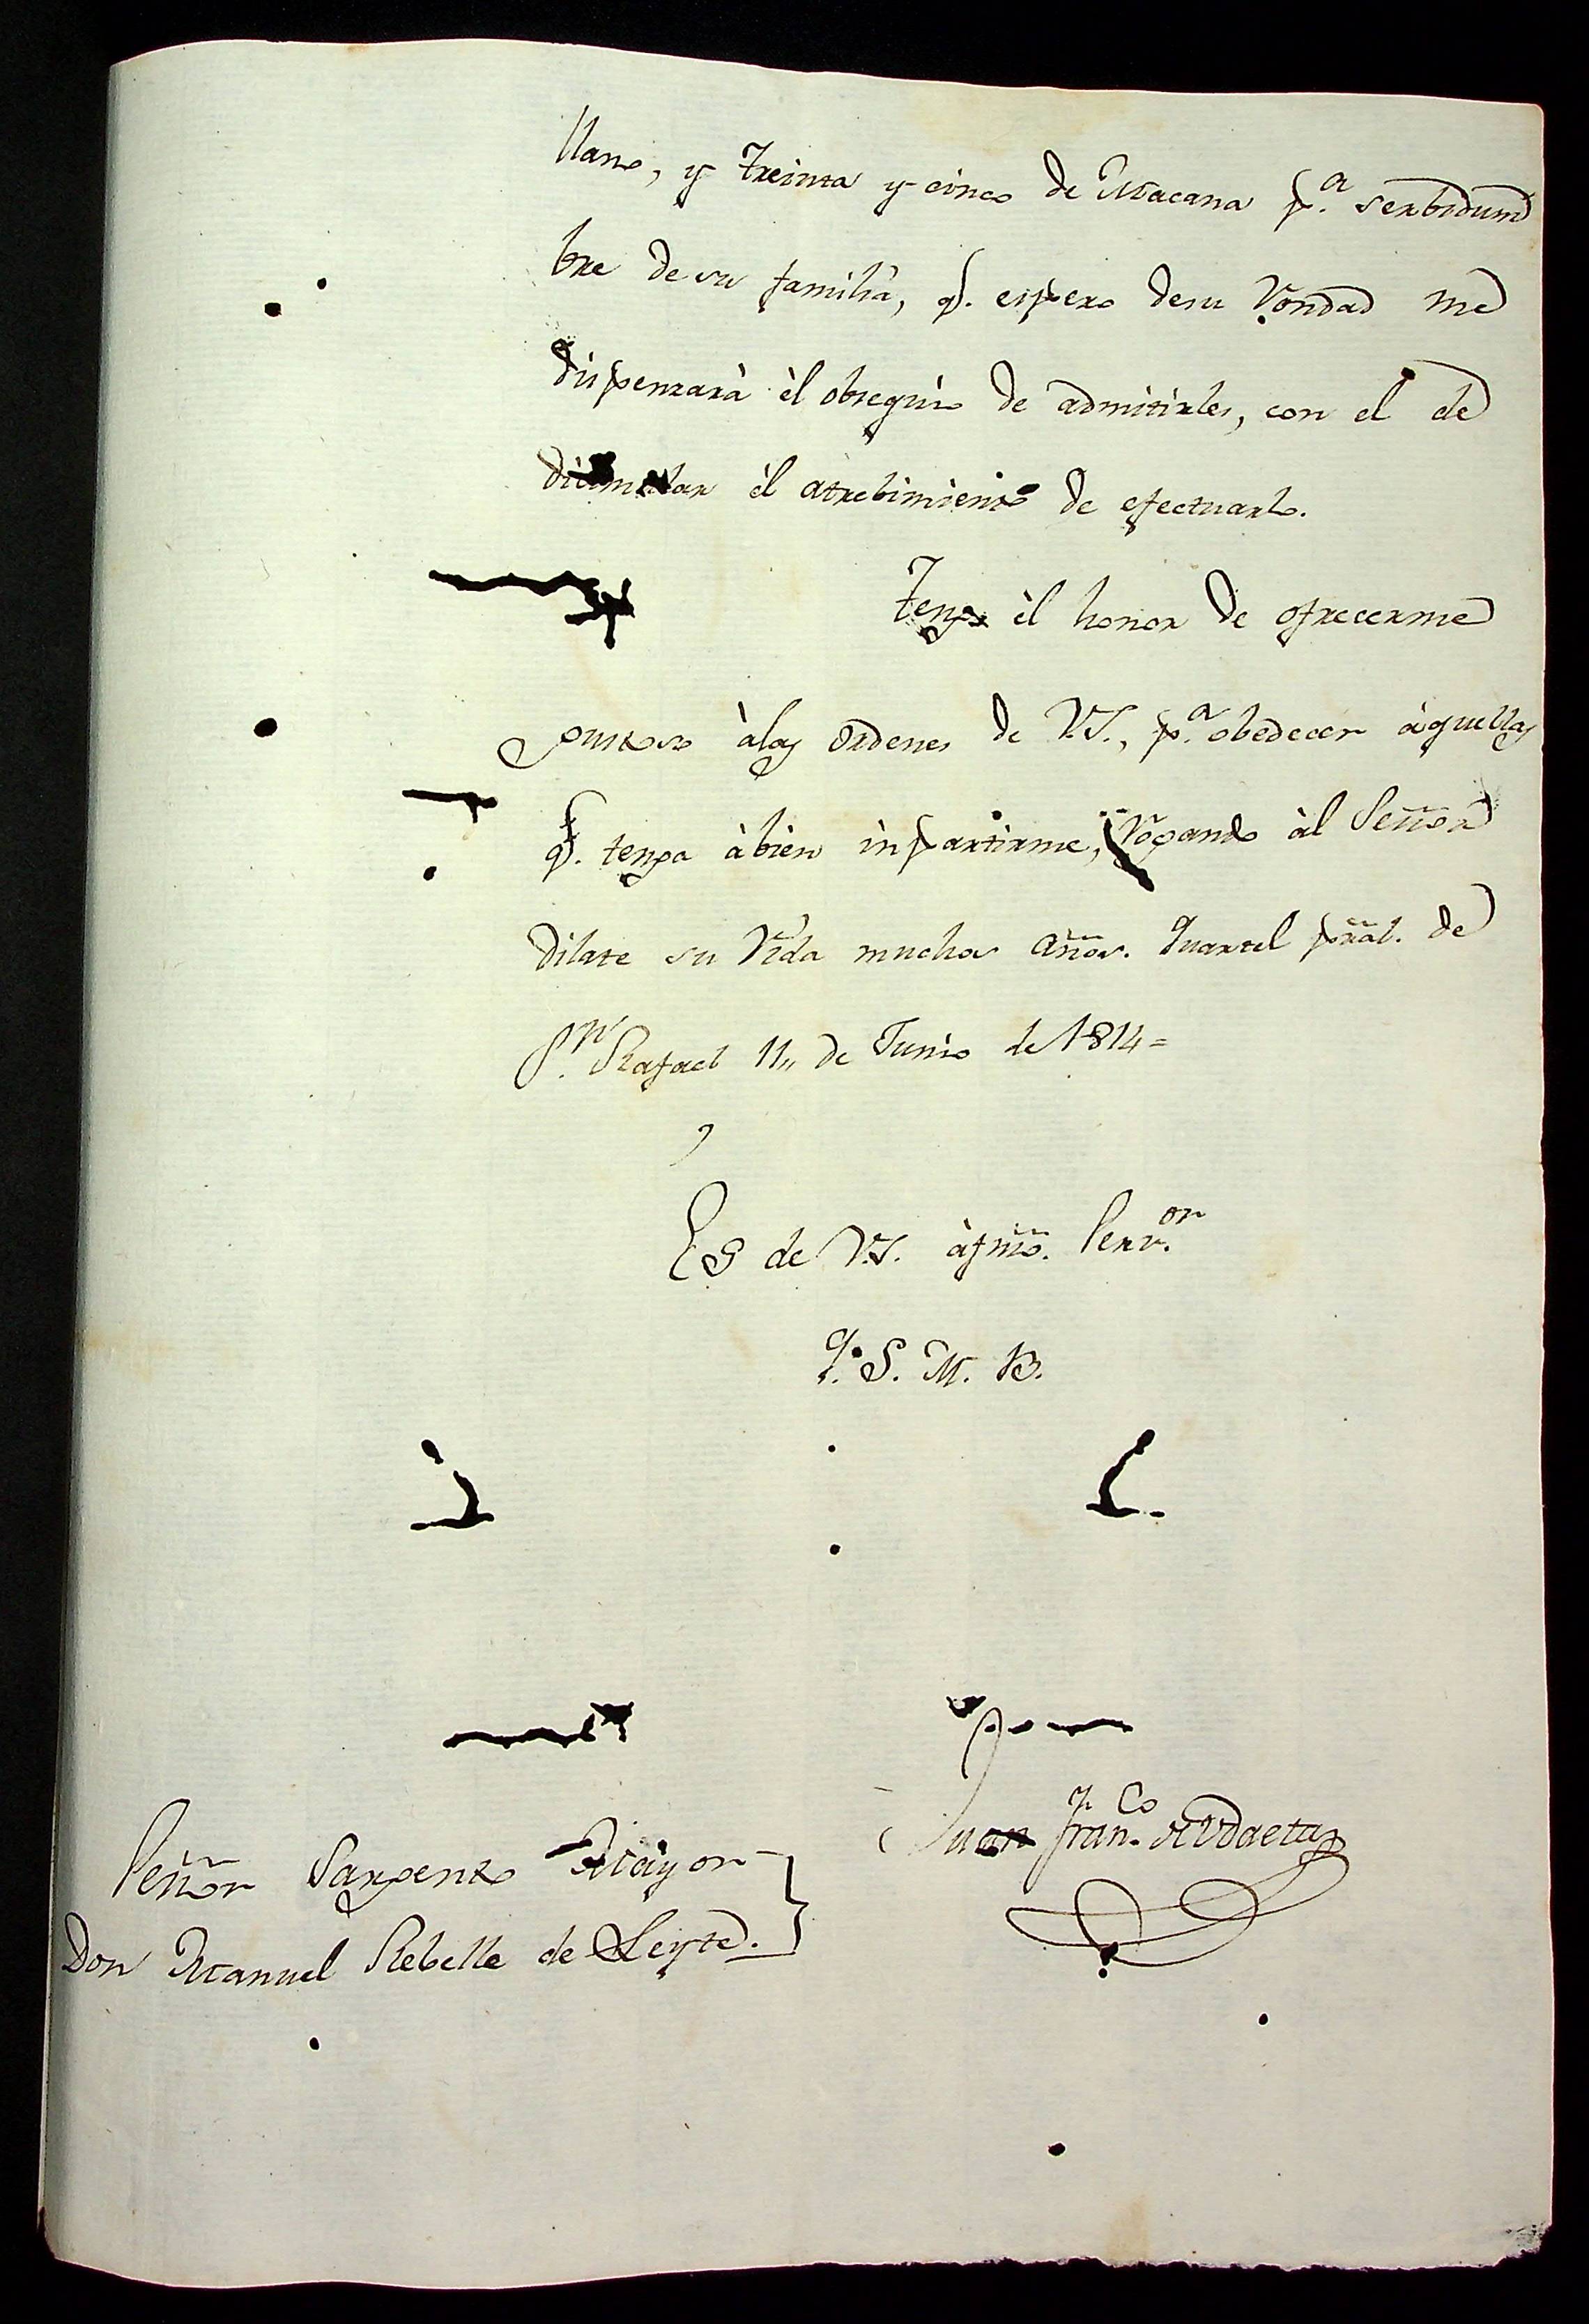 llano, y treinta y cinco de Macana p.ª serbidum
bre de su familia, q.e espero desu Vondad me
dispensarà èl obsequio de admitirles, con el de
dicimular èl atrebimiento de efectuarlo.
Tengo èl honor de ofrecerme
gustoso àlas ordenes de V.S., p.ª obedecer àquellas
q.e tenga àbien inpartirme, Rogando àl Señor
dilate su Vida muchos años. Quartel prãl. de
S.n Rafael 11,, de Junio de 1814=
Es de V.S. àfmõ. Serv.or
q. S. M. B.
Juan Fran.co Udaeta
Señor Sargento Mayor
Don Manuel Rebelle de Leyte.